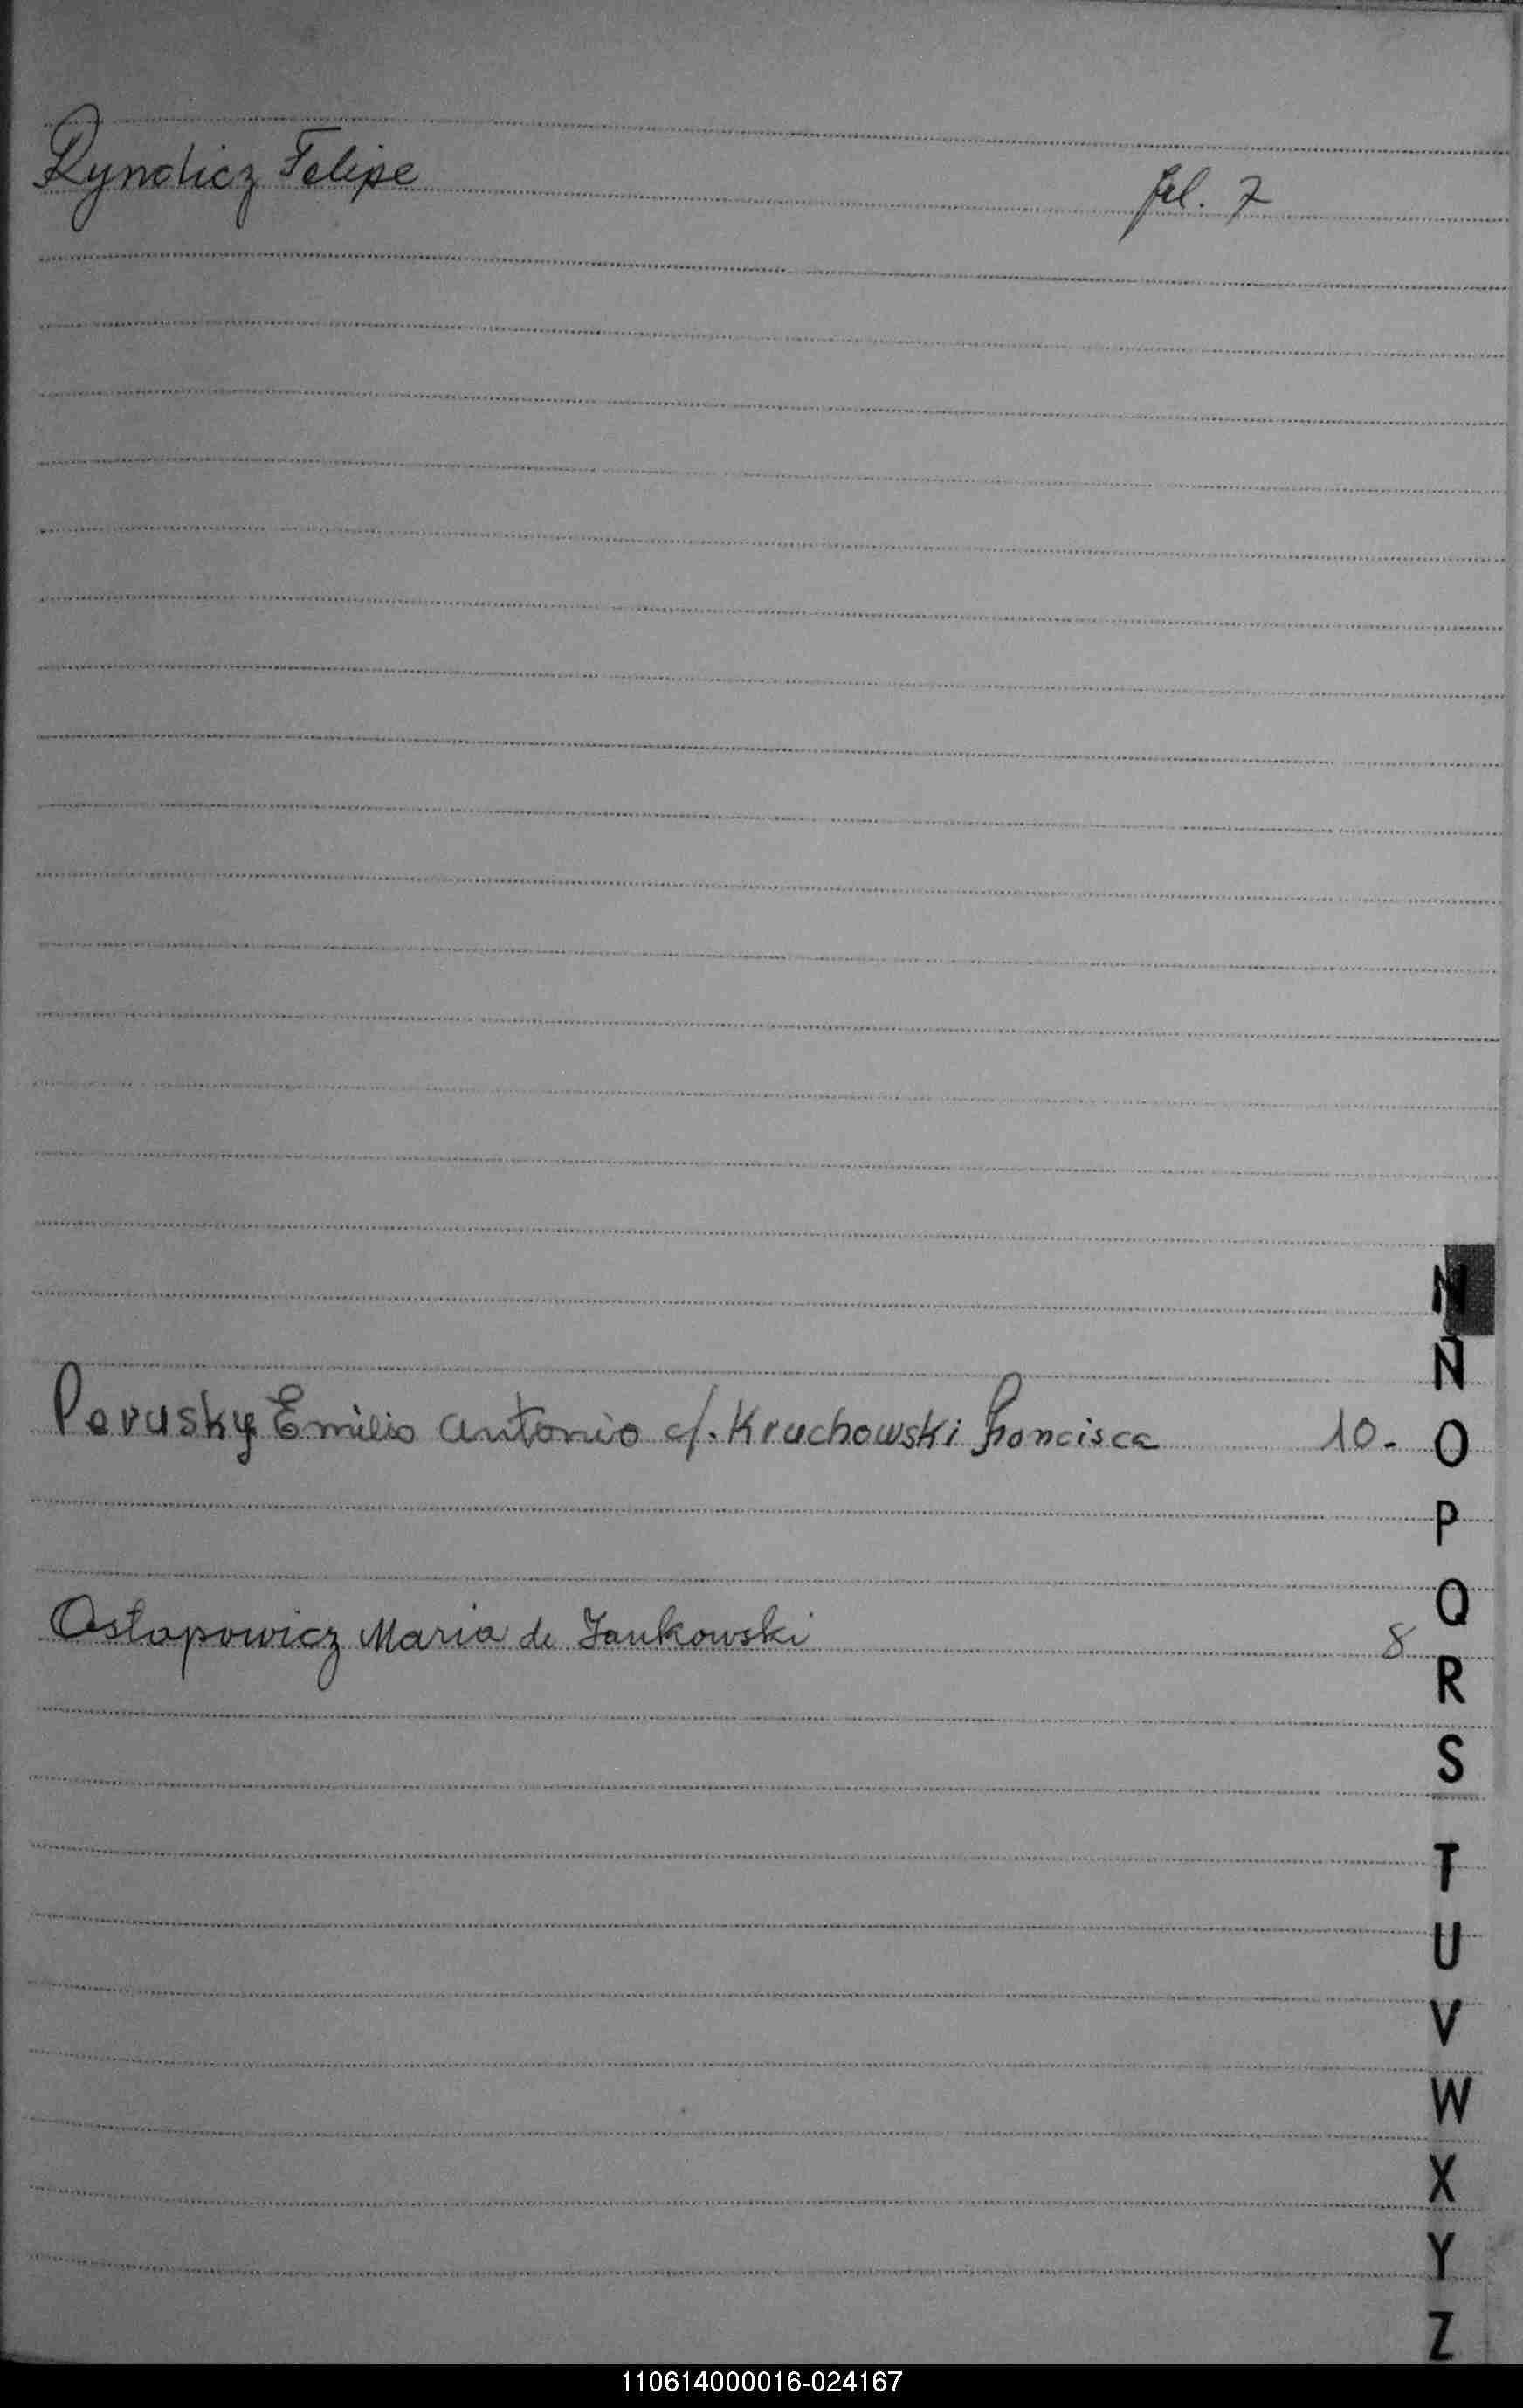 Ryndicz Felipe fol. 7
N
Ñ
Pevusky Emilio Antonio c/. Kruchowski Francisca 10.- O
P
Q
Ostapowicz Maria de Jankowski 8
R
S
T
U
V
W
X
Y
Z
110614000016-024167